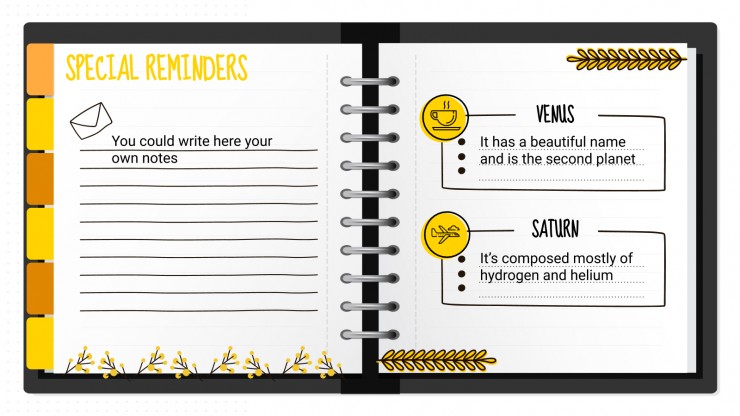 SPECIAL REMINDERS
You could write here your
own notes
VENUS
It has a beautiful name
and is the second planet
SATURN
It’s composed mostly of
hydrogen and helium